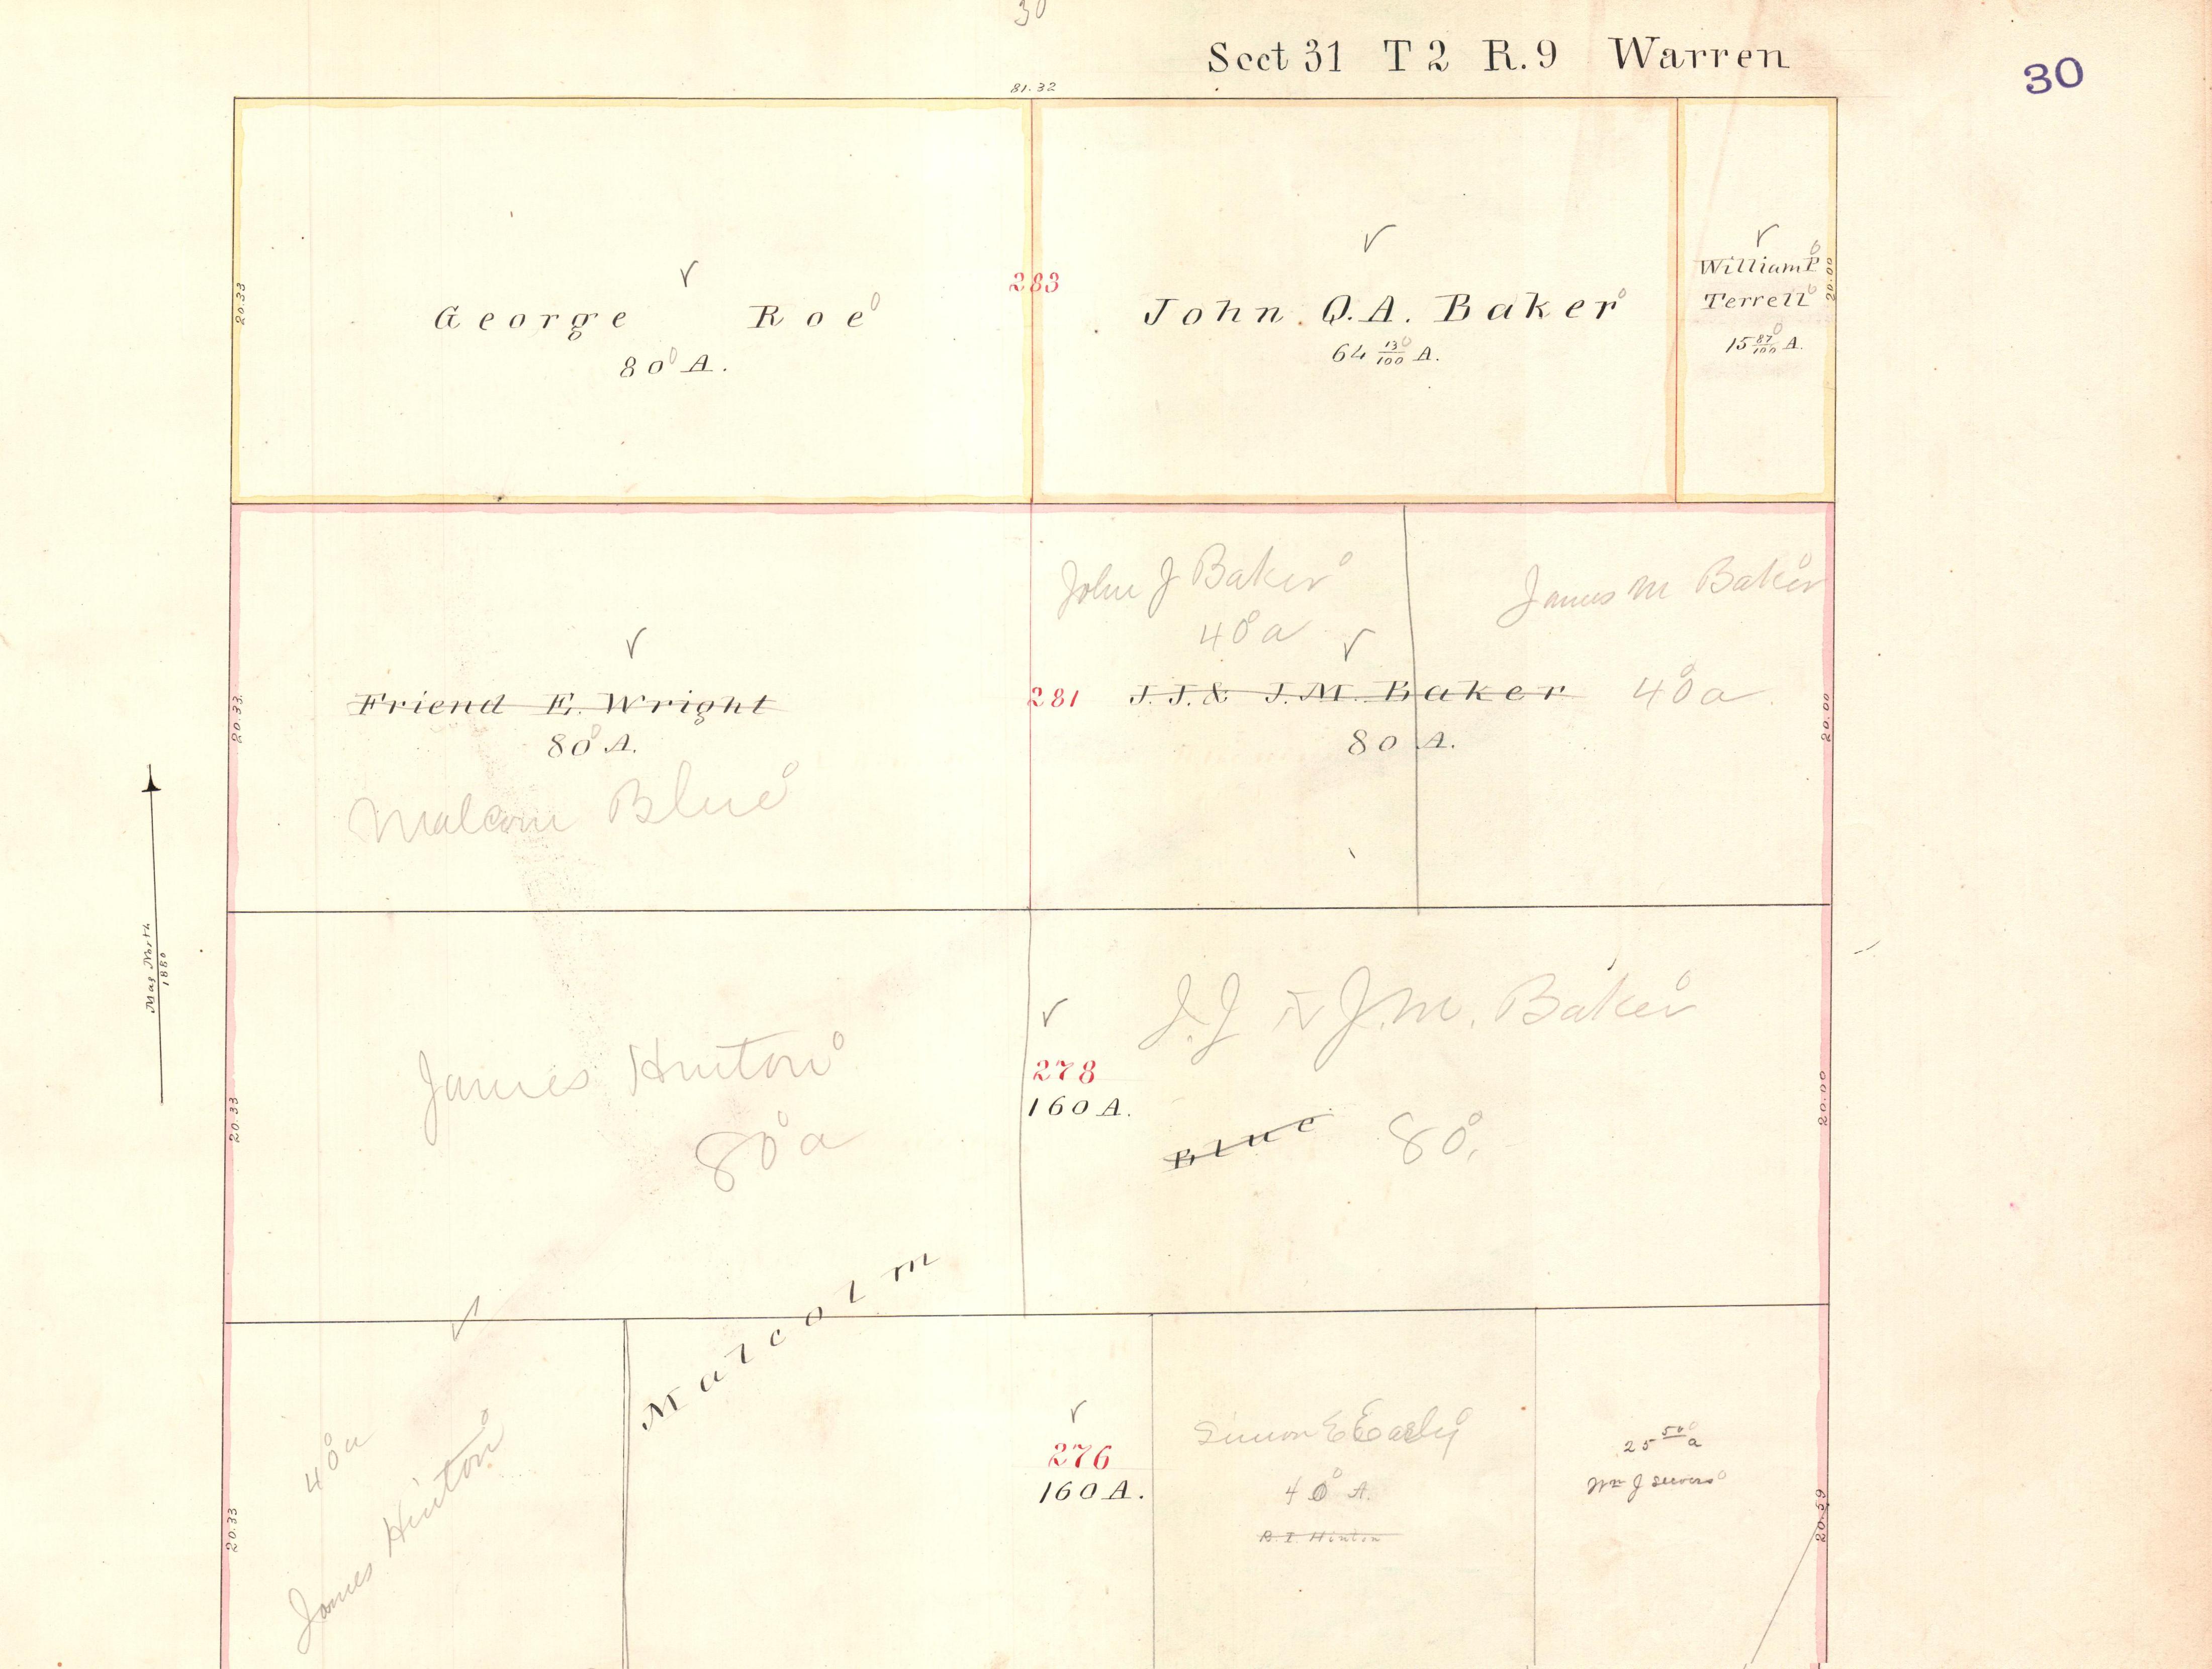 30
Sect 31 T 2 R. 9 Warren
30
81.32
20.33
George Roe
80 A.
283
John Q. A. Baker
64 13/100 A.
William P
Terrell
15 87/100 A.
20.00
20.33.
Friend E. Wright
80 A.
Malcom Blue
281
John J Baker
40 a
James M Baker
40 a
J. J. & J. M. Baker
80 A.
20.00
Mag North
1880
20.33
James Hinton
80 a
278
160 A.
J. J & J. M. Baker
Blue
80.
20.00
Malcolm
20.33
40 a
James Hinton
276
160 A.
Simon E Early
40 A.
R. I. Hinton
25 50 a
Wm J Seevers
20.59